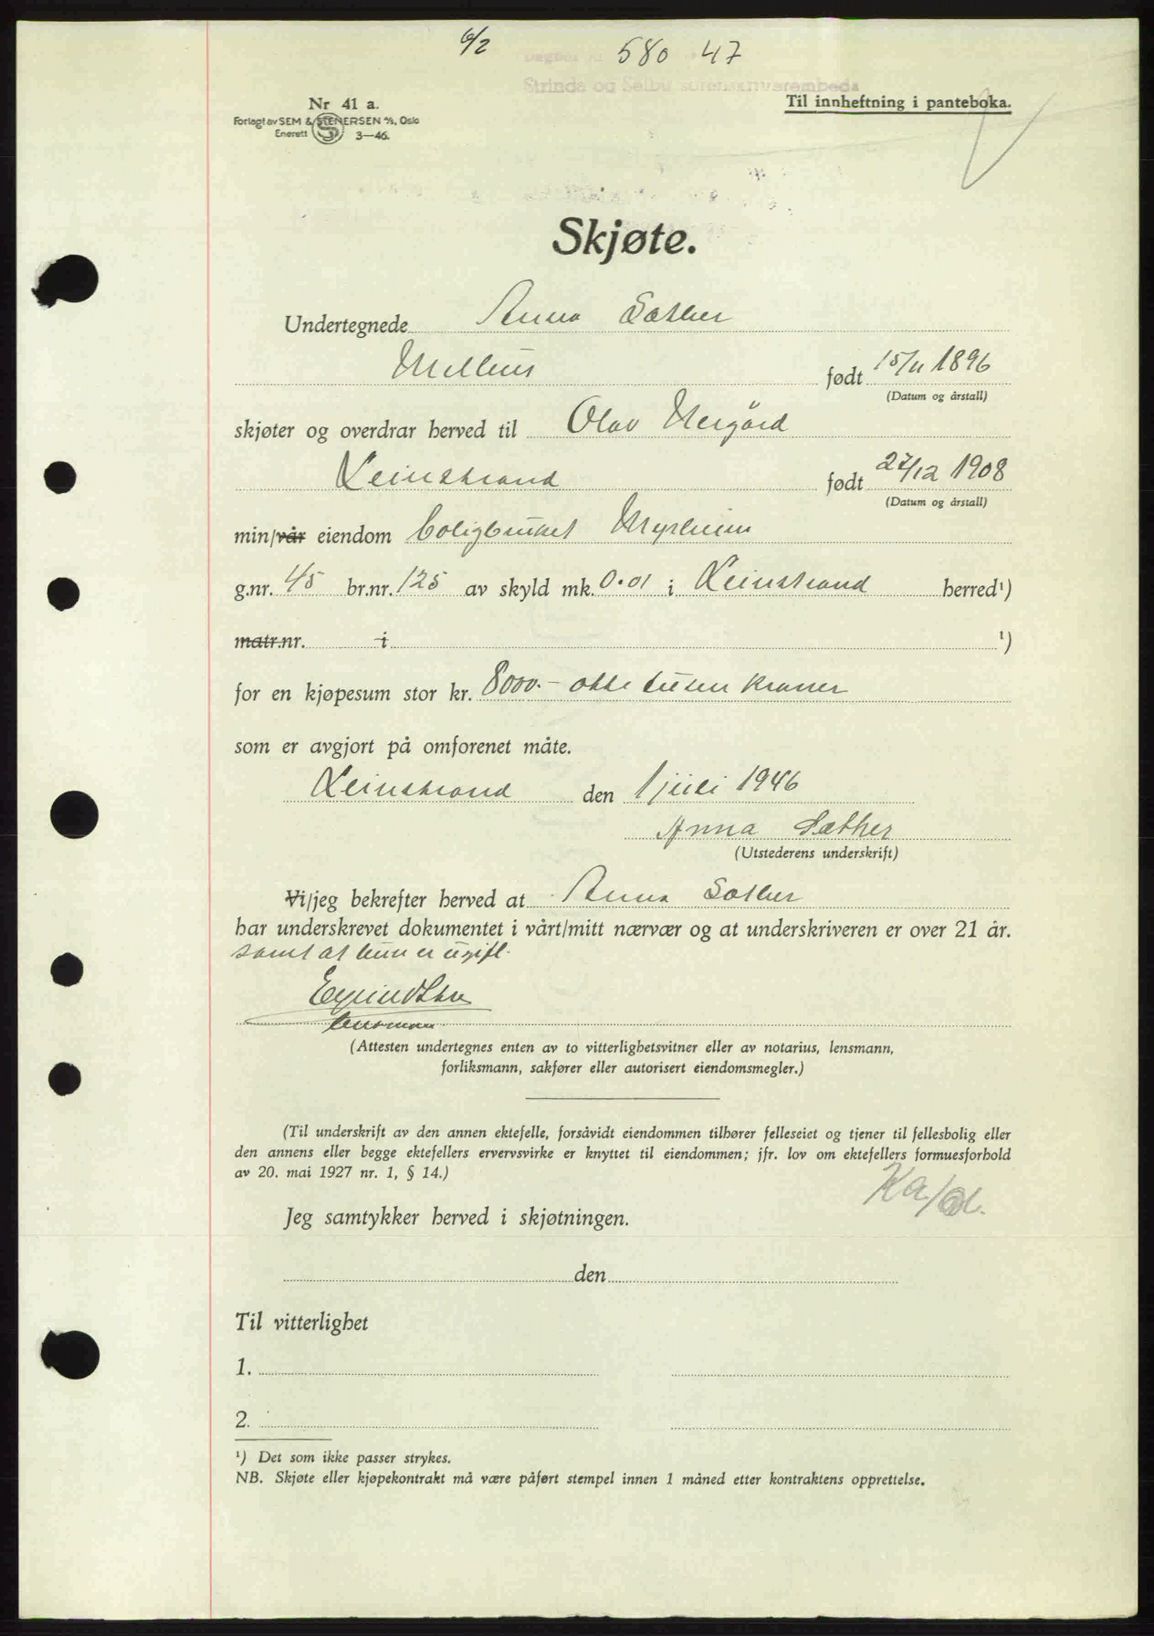 6/2 580 47
Strinda og Selbu sorenskriverembede
Nr 41 a.
Forlagt av SEM & STENERSEN A/S, Oslo
Enerett 3—46.
Til innheftning i panteboka.
Skjøte.
Undertegnede Anna Sæther
født 15/11 1896
(Datum og årstall)
skjøter og overdrar herved til Olav
Leinstrand født 27/12 1908
(Datum og årstall)
min/vår eiendom boligbruket Myrheim
g.nr. 45 br.nr. 125 av skyld mk. 0.01 i Leinstrand herred¹)
matr.nr. i ¹)
for en kjøpesum stor kr. 8000.- otte tusen kroner
som er avgjort på omforenet måte.
Leinstrand den 1 juli 1946
Anna Sæther
(Utstederens underskrift)
Vi/jeg bekrefter herved at Anna Sæther
har underskrevet dokumentet i vårt/mitt nærvær og at underskriveren er over 21 år.
samt at hun er ugift.
lensmann
(Attesten undertegnes enten av to vitterlighetsvitner eller av notarius, lensmann,
forliksmann, sakfører eller autorisert eiendomsmegler.)
(Til underskrift av den annen ektefelle, forsåvidt eiendommen tilhører felleseiet og tjener til fellesbolig eller
den annens eller begge ektefellers ervervsvirke er knyttet til eiendommen; jfr. lov om ektefellers formuesforhold
av 20. mai 1927 nr. 1, § 14.)
Jeg samtykker herved i skjøtningen.
den
Til vitterlighet
1.
2.
¹) Det som ikke passer strykes.
NB. Skjøte eller kjøpekontrakt må være påført stempel innen 1 måned etter kontraktens opprettelse.